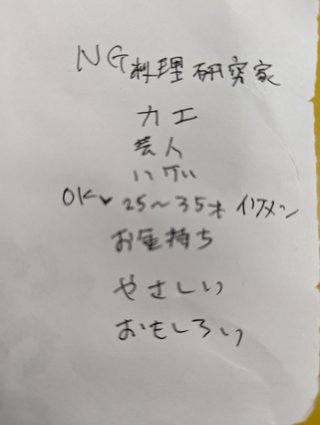 NG 料理研究家
カエ
芸人
ハゲい
OK 25〜35才 イケメン
お金持ち
やさしい
おもしろい